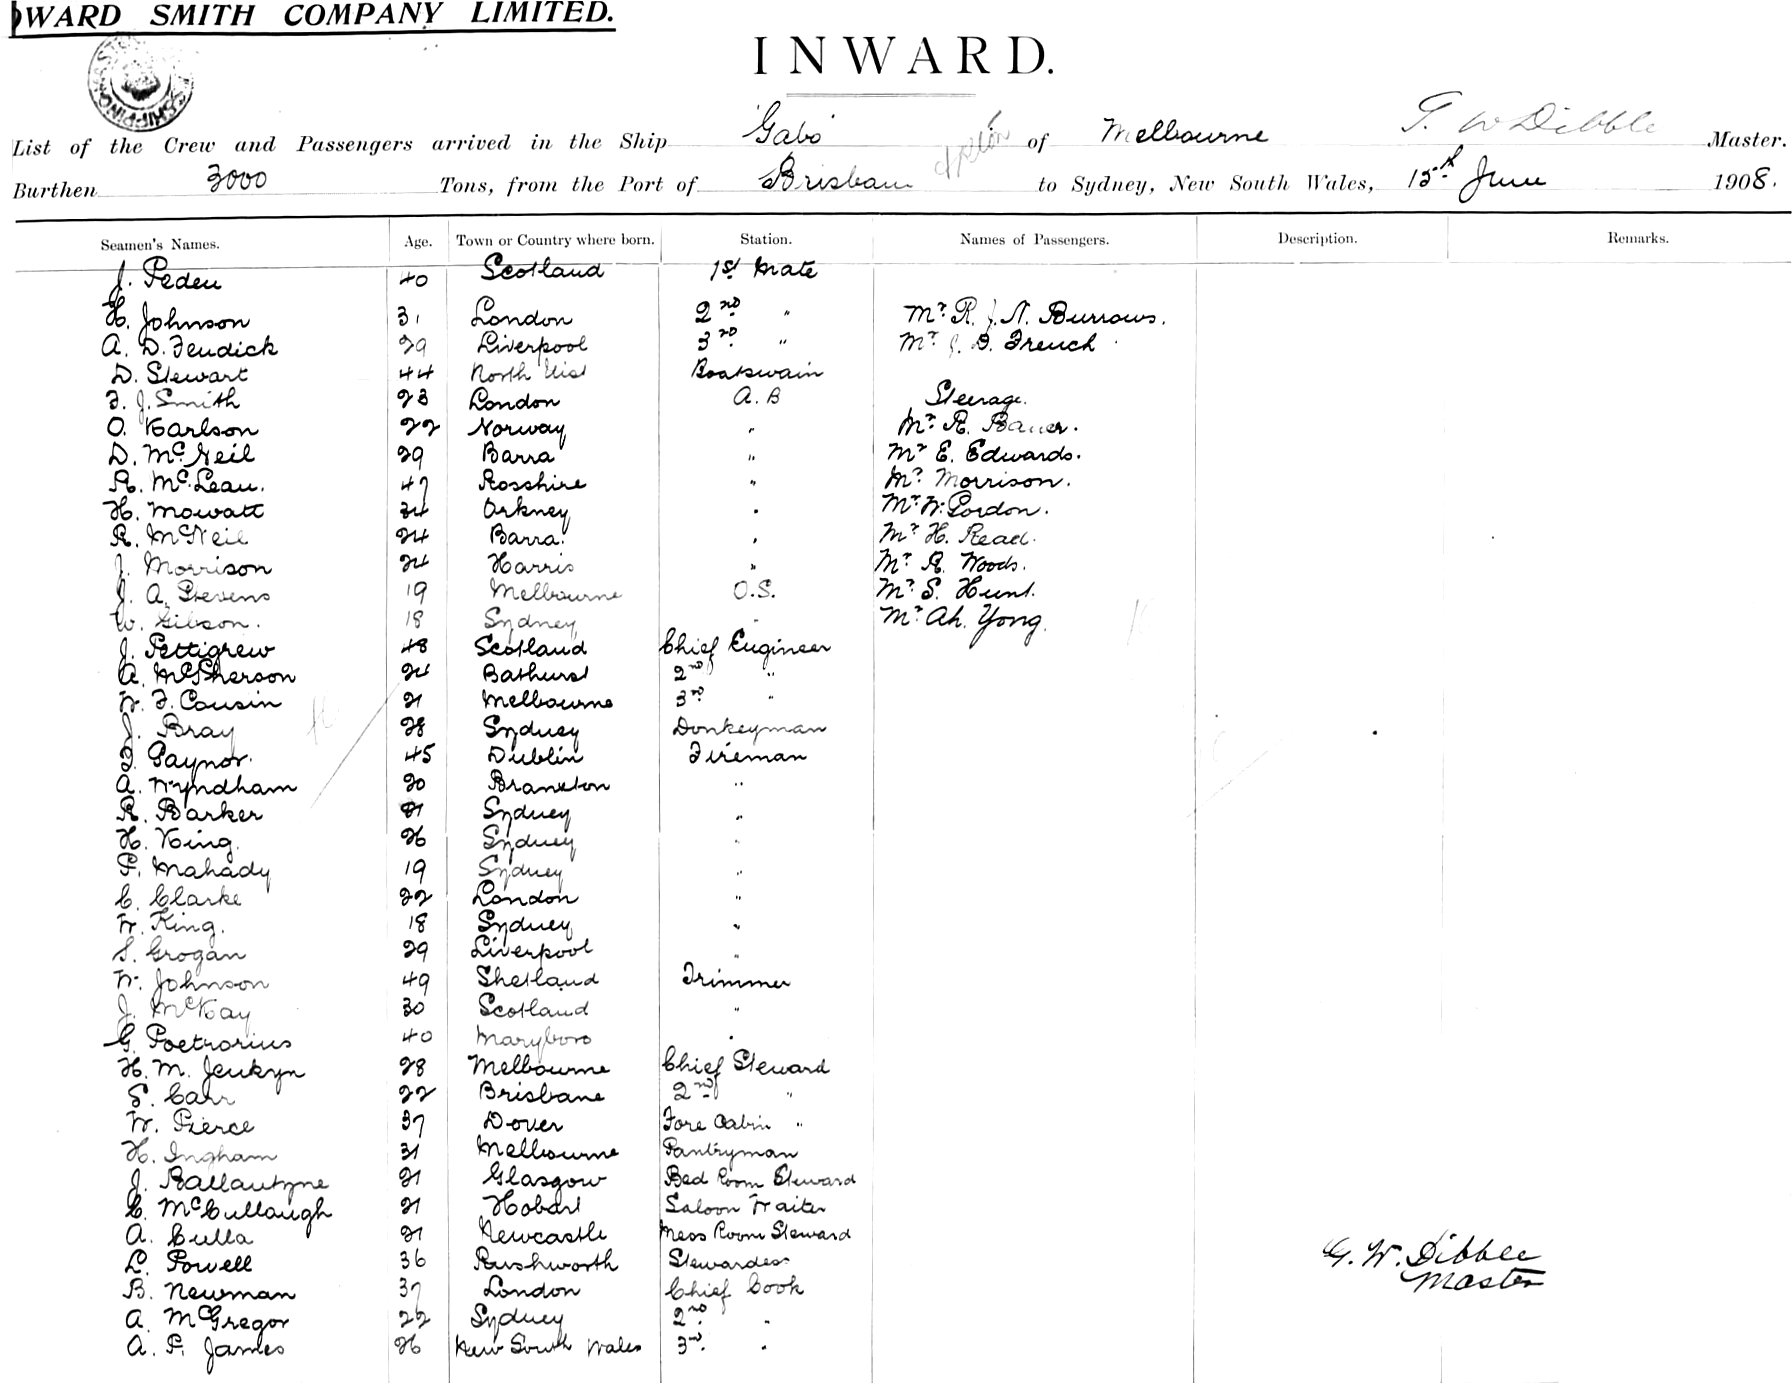 WARD SMITH COMPANY LIMITED.
INWARD.
List of the Crew and Passengers arrived in the Ship Gabo of Melbourne G. W Dibble Master.
Burthen 3000 Tons, from the Port of Brisbane to Sydney, New South Wales, 15th June 1908.
Seamen's Names. Age. Town or Country where born. Station. Names of Passengers. Description. Remarks.
J. Peden 40 Scotland 1st Mate
H. Johnson 31 London 2nd " Mr. R. J. N. Burrows.
A. D. Fendick 29 Liverpool 3rd " Mr J. D. French
D. Stewart 44 North Uist Boatswain
F. J. Smith 23 London A.B Steerage.
O. Karlson 22 Norway " Mr. R. Bauer.
D. McNeil 29 Barra " Mr E. Edwards.
R. McLean. 47 Rosshire " Mr. Morrison.
H. Mowatt 34 Orkney " Mr. W. Gordon.
R. McNeil 24 Barra. " Mr. H. Read.
J. Morrison 24 Harris " Mr. R. Woods.
J. A. Stevens 19 Melbourne O.S. Mr. S. Hunt.
W. Gibson. 18 Sydney " Mr. Ah. Yong.
J. Pettigrew 48 Scotland Chief Engineer
A. McPherson 24 Bathurst 2nd "
W. F. Cousin 21 Melbourne 3rd "
J. Bray 28 Sydney Donkeyman
F. Gaynor. 45 Dublin Fireman
A. Wyndham 20 Branxton "
R. Barker 21 Sydney "
H. King. 26 Sydney "
P. Mahady 19 Sydney "
C. Clarke 22 London "
W. King. 18 Sydney "
S. Grogan 29 Liverpool "
W. Johnson 49 Shetland Trimmer
J. McKay 30 Scotland "
G. Poetrorius 40 Maryboro "
H. M. Jenkyn 28 Melbourne Chief Steward
S. Carr 22 Brisbane 2nd "
W. Pierce 37 Dover Fore Cabin "
H. Ingham 31 Melbourne Pantryman
J. Ballantyne 21 Glasgow Bed Room Steward
C. McCullaugh 21 Hobart Saloon Waiter
A. Culla 21 Newcastle Mess Room Steward
L. Powell 36 Rushworth Stewardess
B. Newman 37 London Chief Cook
A. McGregor 22 Sydney 2nd "
A. P. James 26 New South Wales 3rd "
G. W. Dibble
Master